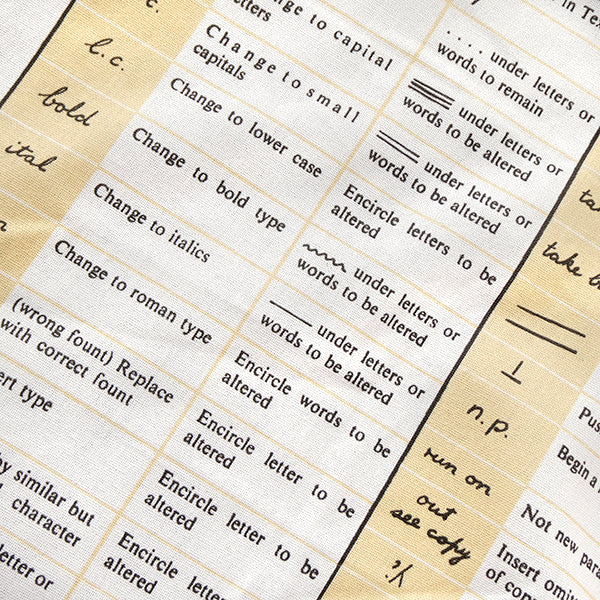 c.
l.c.
bold
ital
Change to capital
letters
Change to small
capitals
Change to lower case
Change to bold type
Change to italics
Change to roman type
(wrong fount) Replace
with correct fount
type
by similar but
character
letter or
in Tex
.... under letters or
words to remain
under letters or
words to be altered
under letters or
words to be altered
Encircle letters to be
altered
under letters or
words to be altered
under letters or
words to be altered
Encircle words to be
altered
Encircle letter to be
altered
Encircle letter to be
altered
Encircle letter to be
altered
take
n.p.
run on
out
see copy
Begin a
Not new para
Insert omit
of cop